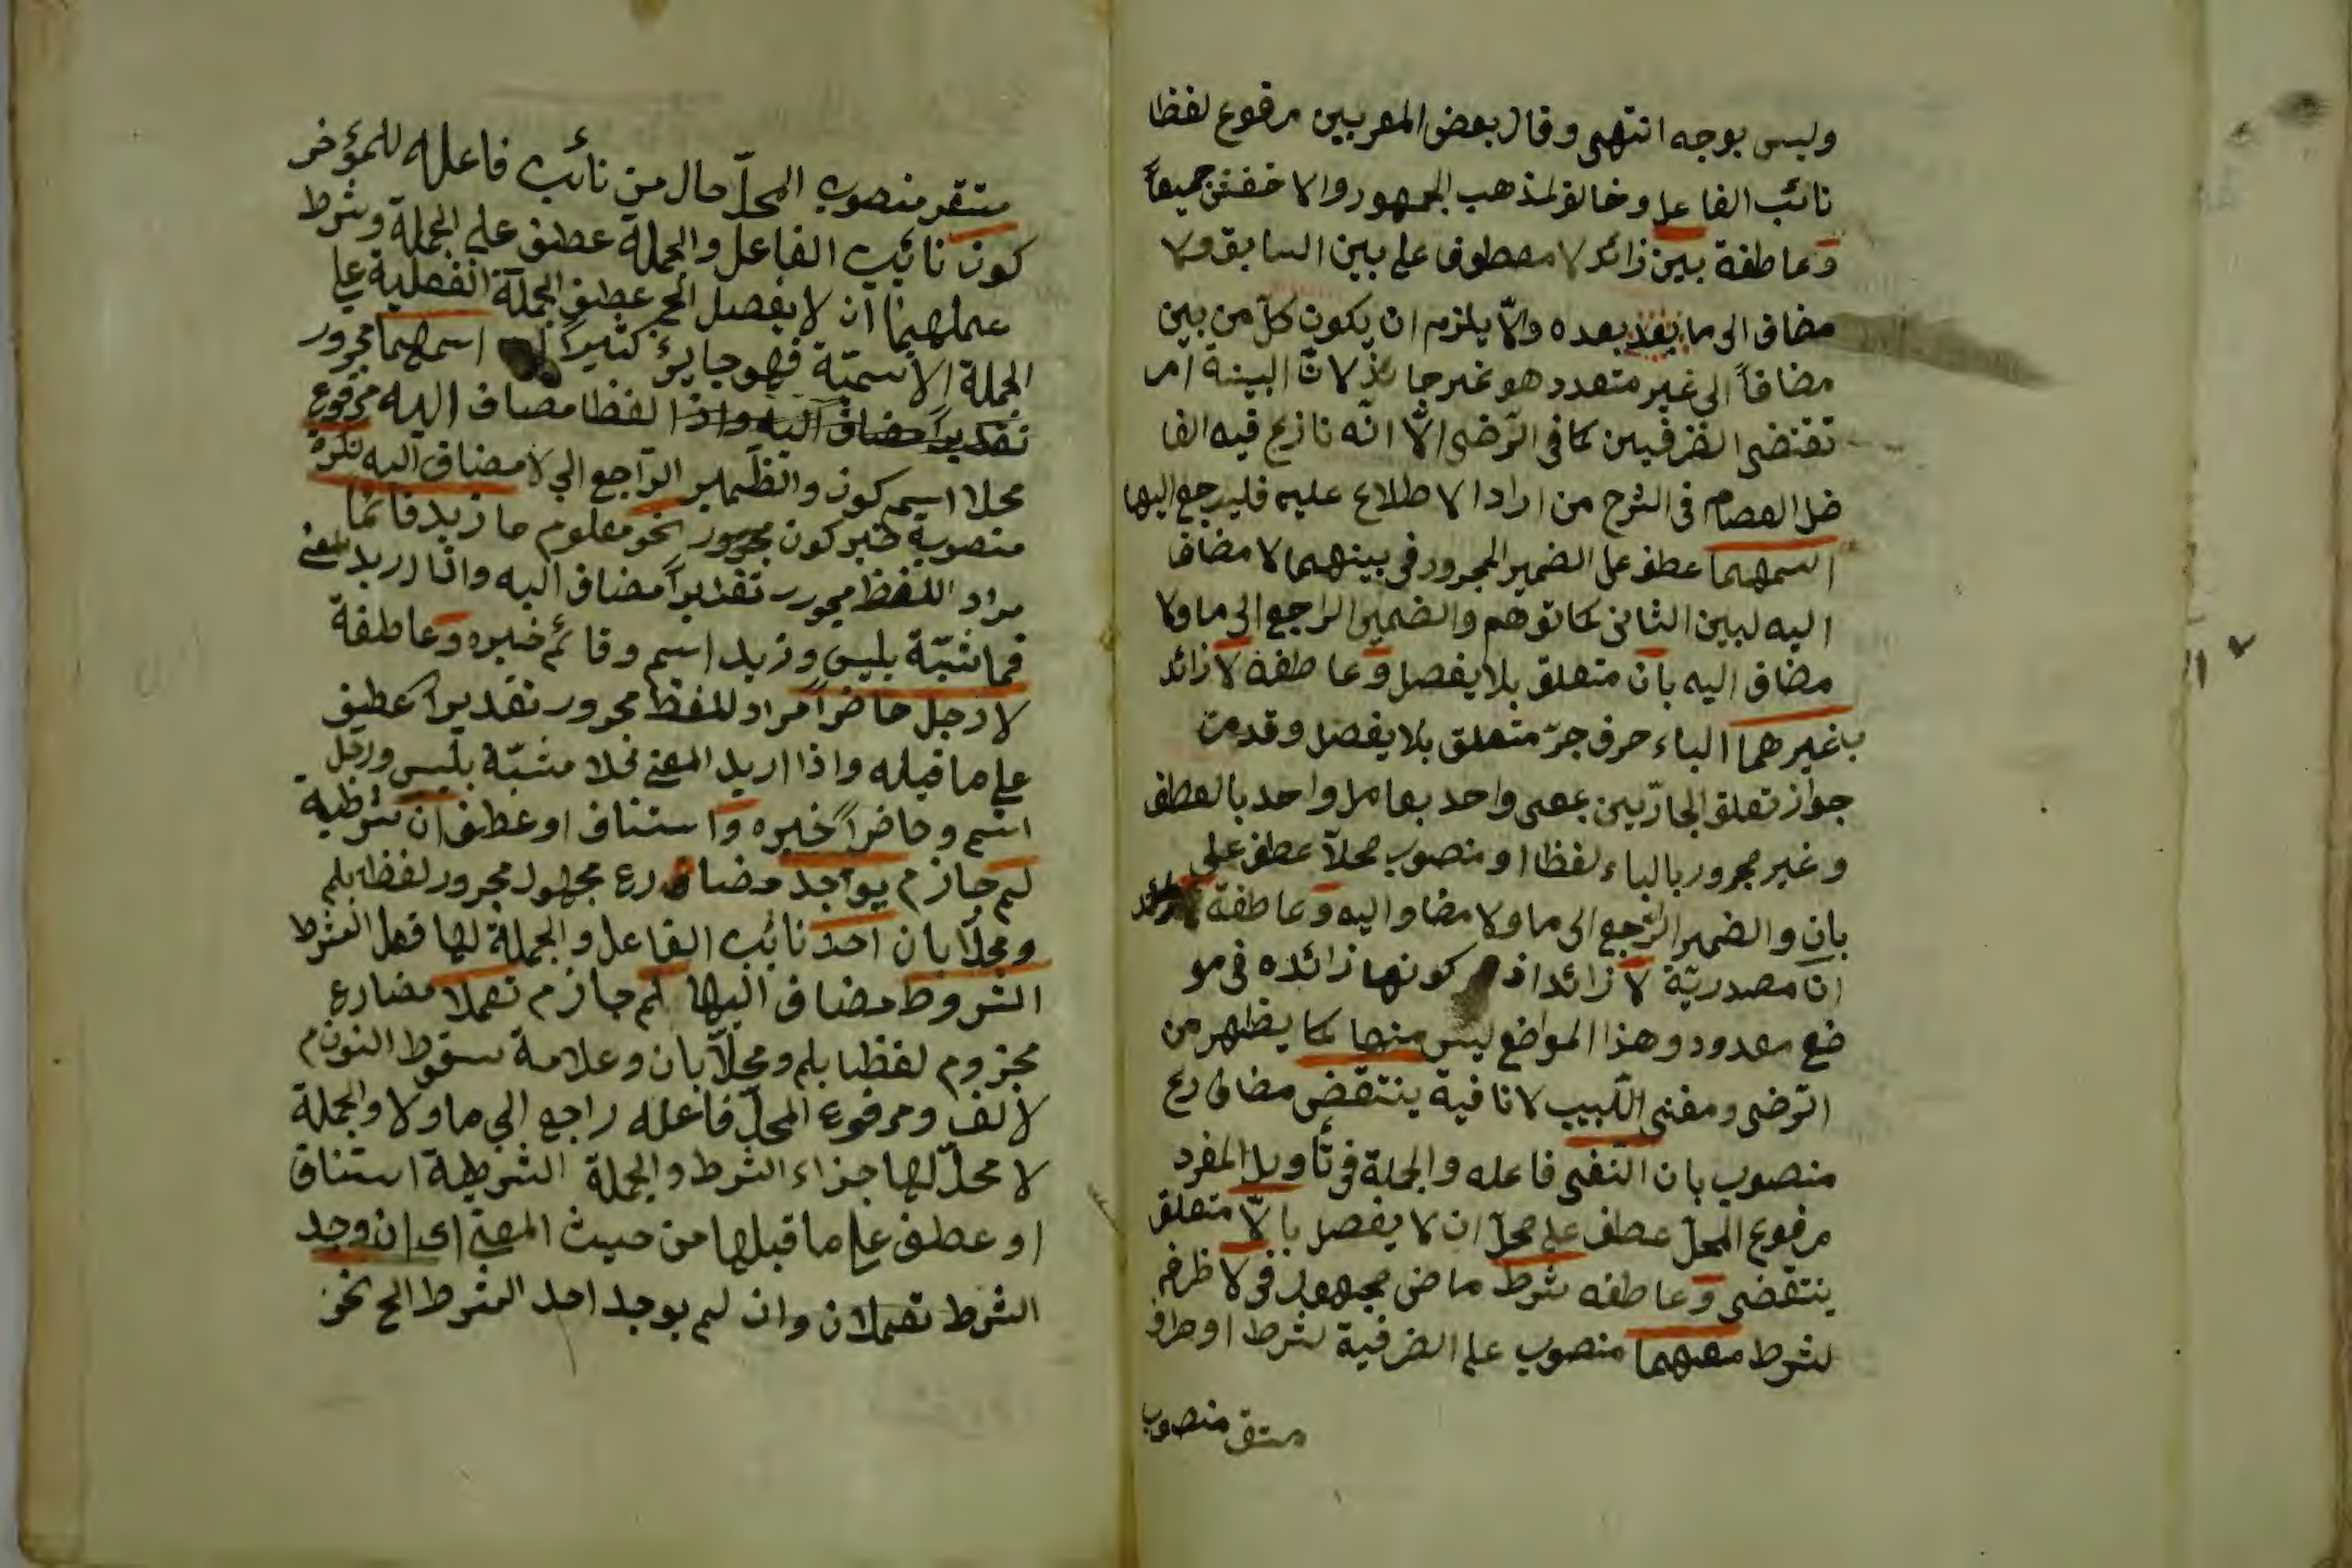 وليس بوجه انتهى وقال بعض المعربين مرفوع لفظا
نائب الفاعل وخالف لمذهب الجمهور والاخفش جميعاً
وعاطفة بين زائد لا معطوف على بين السابق ولا
مضاف الى ما بعده والّا يلزم ان يكون كلّ من بين
مضافاً الى غير متعدد هو غير جائز لانّ البينة امر
تقتضى الطرفين كما فى الرّضى الّا انّه نازع فيه الفا
ضل العصام فى الشرح من اراد الاطلاع عليه فليرجع اليها
اسمهما عطف على الضمير المجرور فى بينهما لا مضاف
اليه لبين الثانى كما توهم والضمير الراجع الى ما ولا
مضاف اليه بان متعلق بلا يفصل وعاطفة لا زائد
بغيرهما الباء حرف جرّ متعلق بلا يفصل وقد مرّ
جواز تعلق الجارّين بمعنى واحد بعامل واحد بالعطف
وغير مجرور بالباء لفظا ومنصوب محلاّ عطف على
بان والضمير الرّاجع الى ما ولا مضاف اليه وعاطفة
ان مصدريّة لا زائد اذ كونها زائده فى مو
ضع معدود وهذا المواضع ليس منها كما يظهر من
الرّضى ومغنى اللّبيب لا نافية ينتقض مضارع
منصوب بان النّفى فاعله والجملة فى تأويل المفرد
مرفوع المحلّ عطف على محلّ ان لا يفصل بالّا متعلق
ينتقض وعاطفه شرط ماضى مجهول فى لا ظرف
لشرط معهما منصوب على الظرفية لشرط او ظرف
مستقر منصوب
مستقر منصوب المحلّ حال من نائب فاعله للمؤخر
كون نائب الفاعل والجملة عطف على الجملة وشرط
عملهما ان لا يفصل الخ عطف الجملة الفعلية على
الجملة الاسميّة فهو جايز كثيراً اسمهما مجرور
تقديراً مضاف اليه واذا لفظا مضاف اليه مرفوع
محلا اسم كون والضّمير الرّاجع الى لا مضاف اليه نكرة
منصوبة خبر كون مجرور نحو معلوم ما زيد قائما
مراد اللفظ مجرور تقديراً مضاف اليه واذا اريد المعنى
فما مشبّهة بليس وزيد اسم وقائم خبره وعاطفة
لا رجل حاضراً مراد للفظ مجرور تقديراً عطف
على ما قبله واذا اريد المعنى فلا مشبّهة بليس ورجل
اسم وحاضراً خبره و استناف او عطف ان شرطية
لم جازم يوجد مضارع مجهول مجرور لفظه بلم
ومحلّا بان احد نائب الفاعل والجملة لها فعل الشرط
الشروط مضاف اليها لم جازم تعملا مضارع
مجزوم لفظا بلم ومحلّا بان وعلامة سقوط النون م
لالف ومرفوع المحلّ فاعله راجع الى ما ولا والجملة
لا محلّ لها جزاء الشرط والجملة الشرطية استناف
او عطف على ما قبلها من حيث المعنى اى ان وجد
الشرط تعملان وان لم يوجد احد الشرط الخ نحو